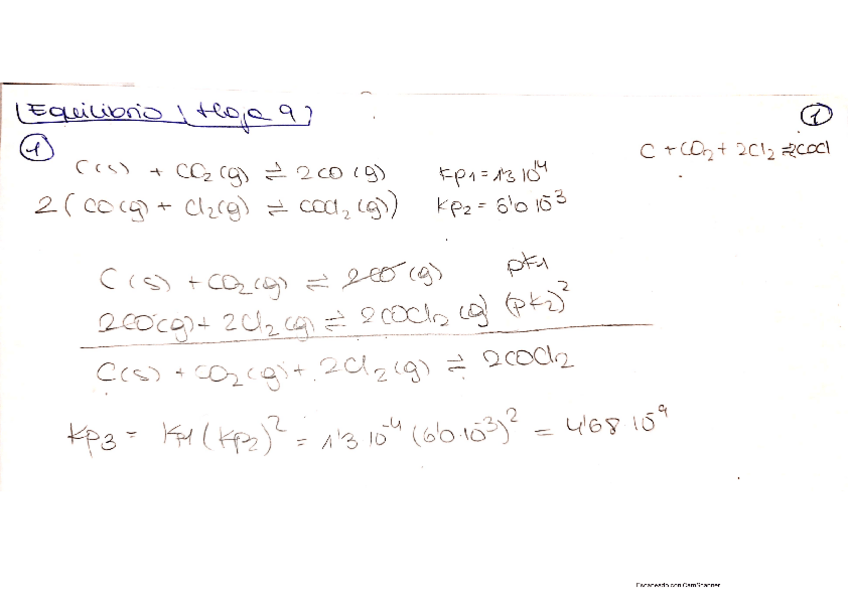 Equilibrio (Hoja 9)
1
1
C(s) + CO2(g) ⇌ 2CO(g) Kp1 = 1'3 10^14
C + CO2 + 2Cl2 ⇌ 2COCl
2(CO(g) + Cl2(g) ⇌ COCl2(g)) Kp2 = 6'0 10^-3
C(s) + CO2(g) ⇌ 2CO(g) pK1
2CO(g) + 2Cl2(g) ⇌ 2COCl2(g) (pK2)^2
C(s) + CO2(g) + 2Cl2(g) ⇌ 2COCl2
Kp3 = Kp1 (Kp2)^2 = 1'3 10^-4 (6'0·10^-3)^2 = 4'68·10^-9
Escaneado con CamScanner